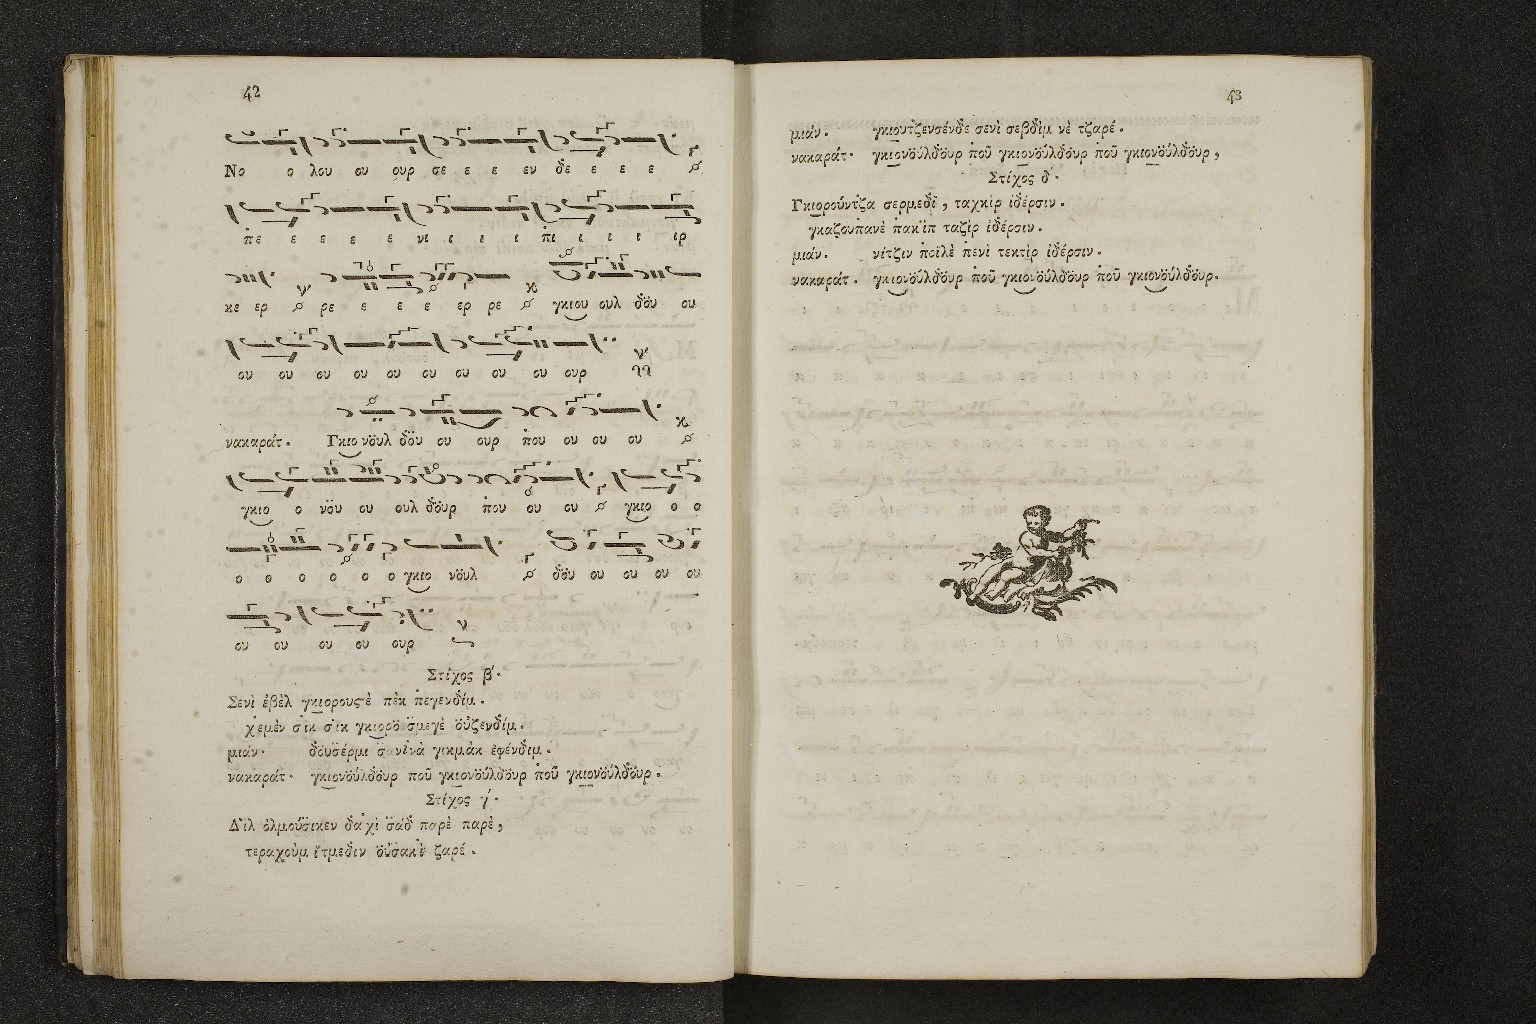 42
Νο ο λου ου ουρ σε ε ε εν δε ε ε ε
πε ε ε ε ε νι ι ι ι πι ι ι ι ιρ
κε ερ ρε ε ε ε ερ ρε γκιου ουλ δὸυ ου
ου ου ου ου ου ου ου ου ου ουρ
νακαράτ. Γκιο νὸυλ δὸυ ου ουρ που ου ου ου
γκιο ο νὸυ ου ουλ δὸυρ που ου ου γκιο ο ο
ο ο ο ο ο ο γκιο νὸυλ δὸυ ου ου ου ου
ου ου ου ου ουρ
Στίχος β'.
Σενὶ ἐβὲλ γκιορουςὲ πὲκ πεγενδίμ.
χεμὲν σὶκ σὶκ γκιορὸ σμεγὲ οὐζενδίμ.
μιάν. δουσέρμι σανινὰ γικμὰκ ἐφένδιμ.
νακαράτ. γκιονούλδουρ ποῦ γκιονούλδουρ ποῦ γκιονούλδουρ.
Στίχος γ'.
Δὶλ ὀλμούσικεν δαχὶ σάδ παρὲ παρὲ,
τεραχοὺμ ἴτμεδιν οὐσακὲ ζαρέ.
43
μιάν. γκιουτζενσένδε σενὶ σεβδὶμ νὲ τζαρέ.
νακαράτ. γκιονούλδουρ ποῦ γκιονούλδουρ ποῦ γκιονούλδουρ,
Στίχος δ'.
Γκιοροῦντζα σερμεδὶ, ταχκὶρ ἰδέρσιν.
γκαζουπανὲ πακὶπ ταζὶρ ἰδέρσιν.
μιάν. νίτζιν ποϊλὲ πενὶ τεκτὶρ ἰδέρσιν.
νακαράτ. γκιονούλδουρ ποῦ γκιονούλδουρ ποῦ γκιονούλδουρ.